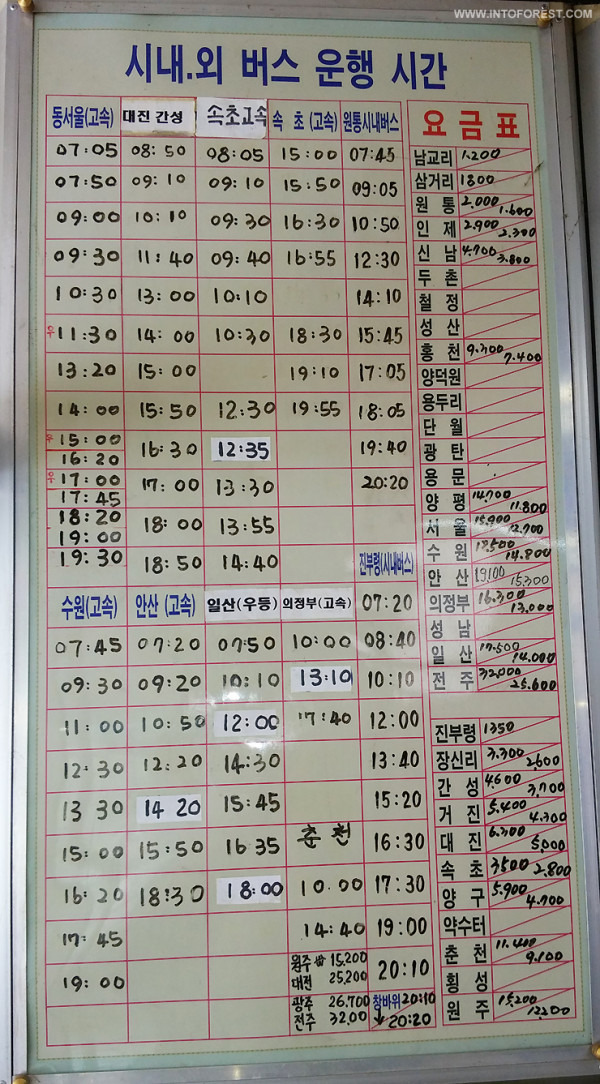 WWW.INTOFOREST.COM
시내.외 버스 운행 시간
동서울(고속) 대진 간성 속초고속 속 초 (고속) 원통시내버스 요금표
07:05 08:50 08:05 15:00 07:45 남교리 1.200
07:50 09:10 09:10 15:50 09:05 삼거리 1800
09:00 10:10 09:30 16:30 10:50 원 통 2.000 1.600
09:30 11:40 09:40 16:55 12:30 인 제 2.900 2.300
신 남 4.700 3.800
10:30 13:00 10:10 14:10 두 촌
철 정
우 11:30 14:00 10:30 18:30 15:45 성 산
홍 천 9.300 7.400
13:20 15:00 19:10 17:05 양덕원
14:00 15:50 12:30 19:55 18:05 용두리
단 월
우 15:00 16:30 12:35 19:40 광 탄
16:20
우 17:00 17:00 13:30 20:20 용 문
17:45 양 평 14.700 11.800
18:20 18:00 13:55 서 울 15.900 12.700
19:00 수 원 18.500 14.800
19:30 18:50 14:40 진부령(시내버스) 안 산 19.100 15.300
수원(고속) 안산 (고속) 일산(우등) 의정부(고속) 07:20 의정부 16.300 13.000
성 남
07:45 07:20 07:50 10:00 08:40 일 산 17.500 14.000
09:30 09:20 10:10 13:10 10:10 전 주 32.000 25.600
11:00 10:50 12:00 17:40 12:00 진부령 1350
12:30 12:20 14:30 13:40 장신리 3.300 2,600
간 성 4.600 3,700
13 30 14 20 15:45 15:20 거 진 5.400 4.300
15:00 15:50 16 35 춘천 16:30 대 진 6.300 5,000
속 초 3500 2.800
16:20 18:30 18:00 10.00 17:30 양 구 5.900 4.700
17:45 14:40 19:00 약수터
춘 천 11.400 9.100
19:00 원주 15,200 20:10 횡 성
대전 25,200
광주 26.700 창바위 20:10 원 주 15,200 12,200
전주 32,00 ↓ 20:20